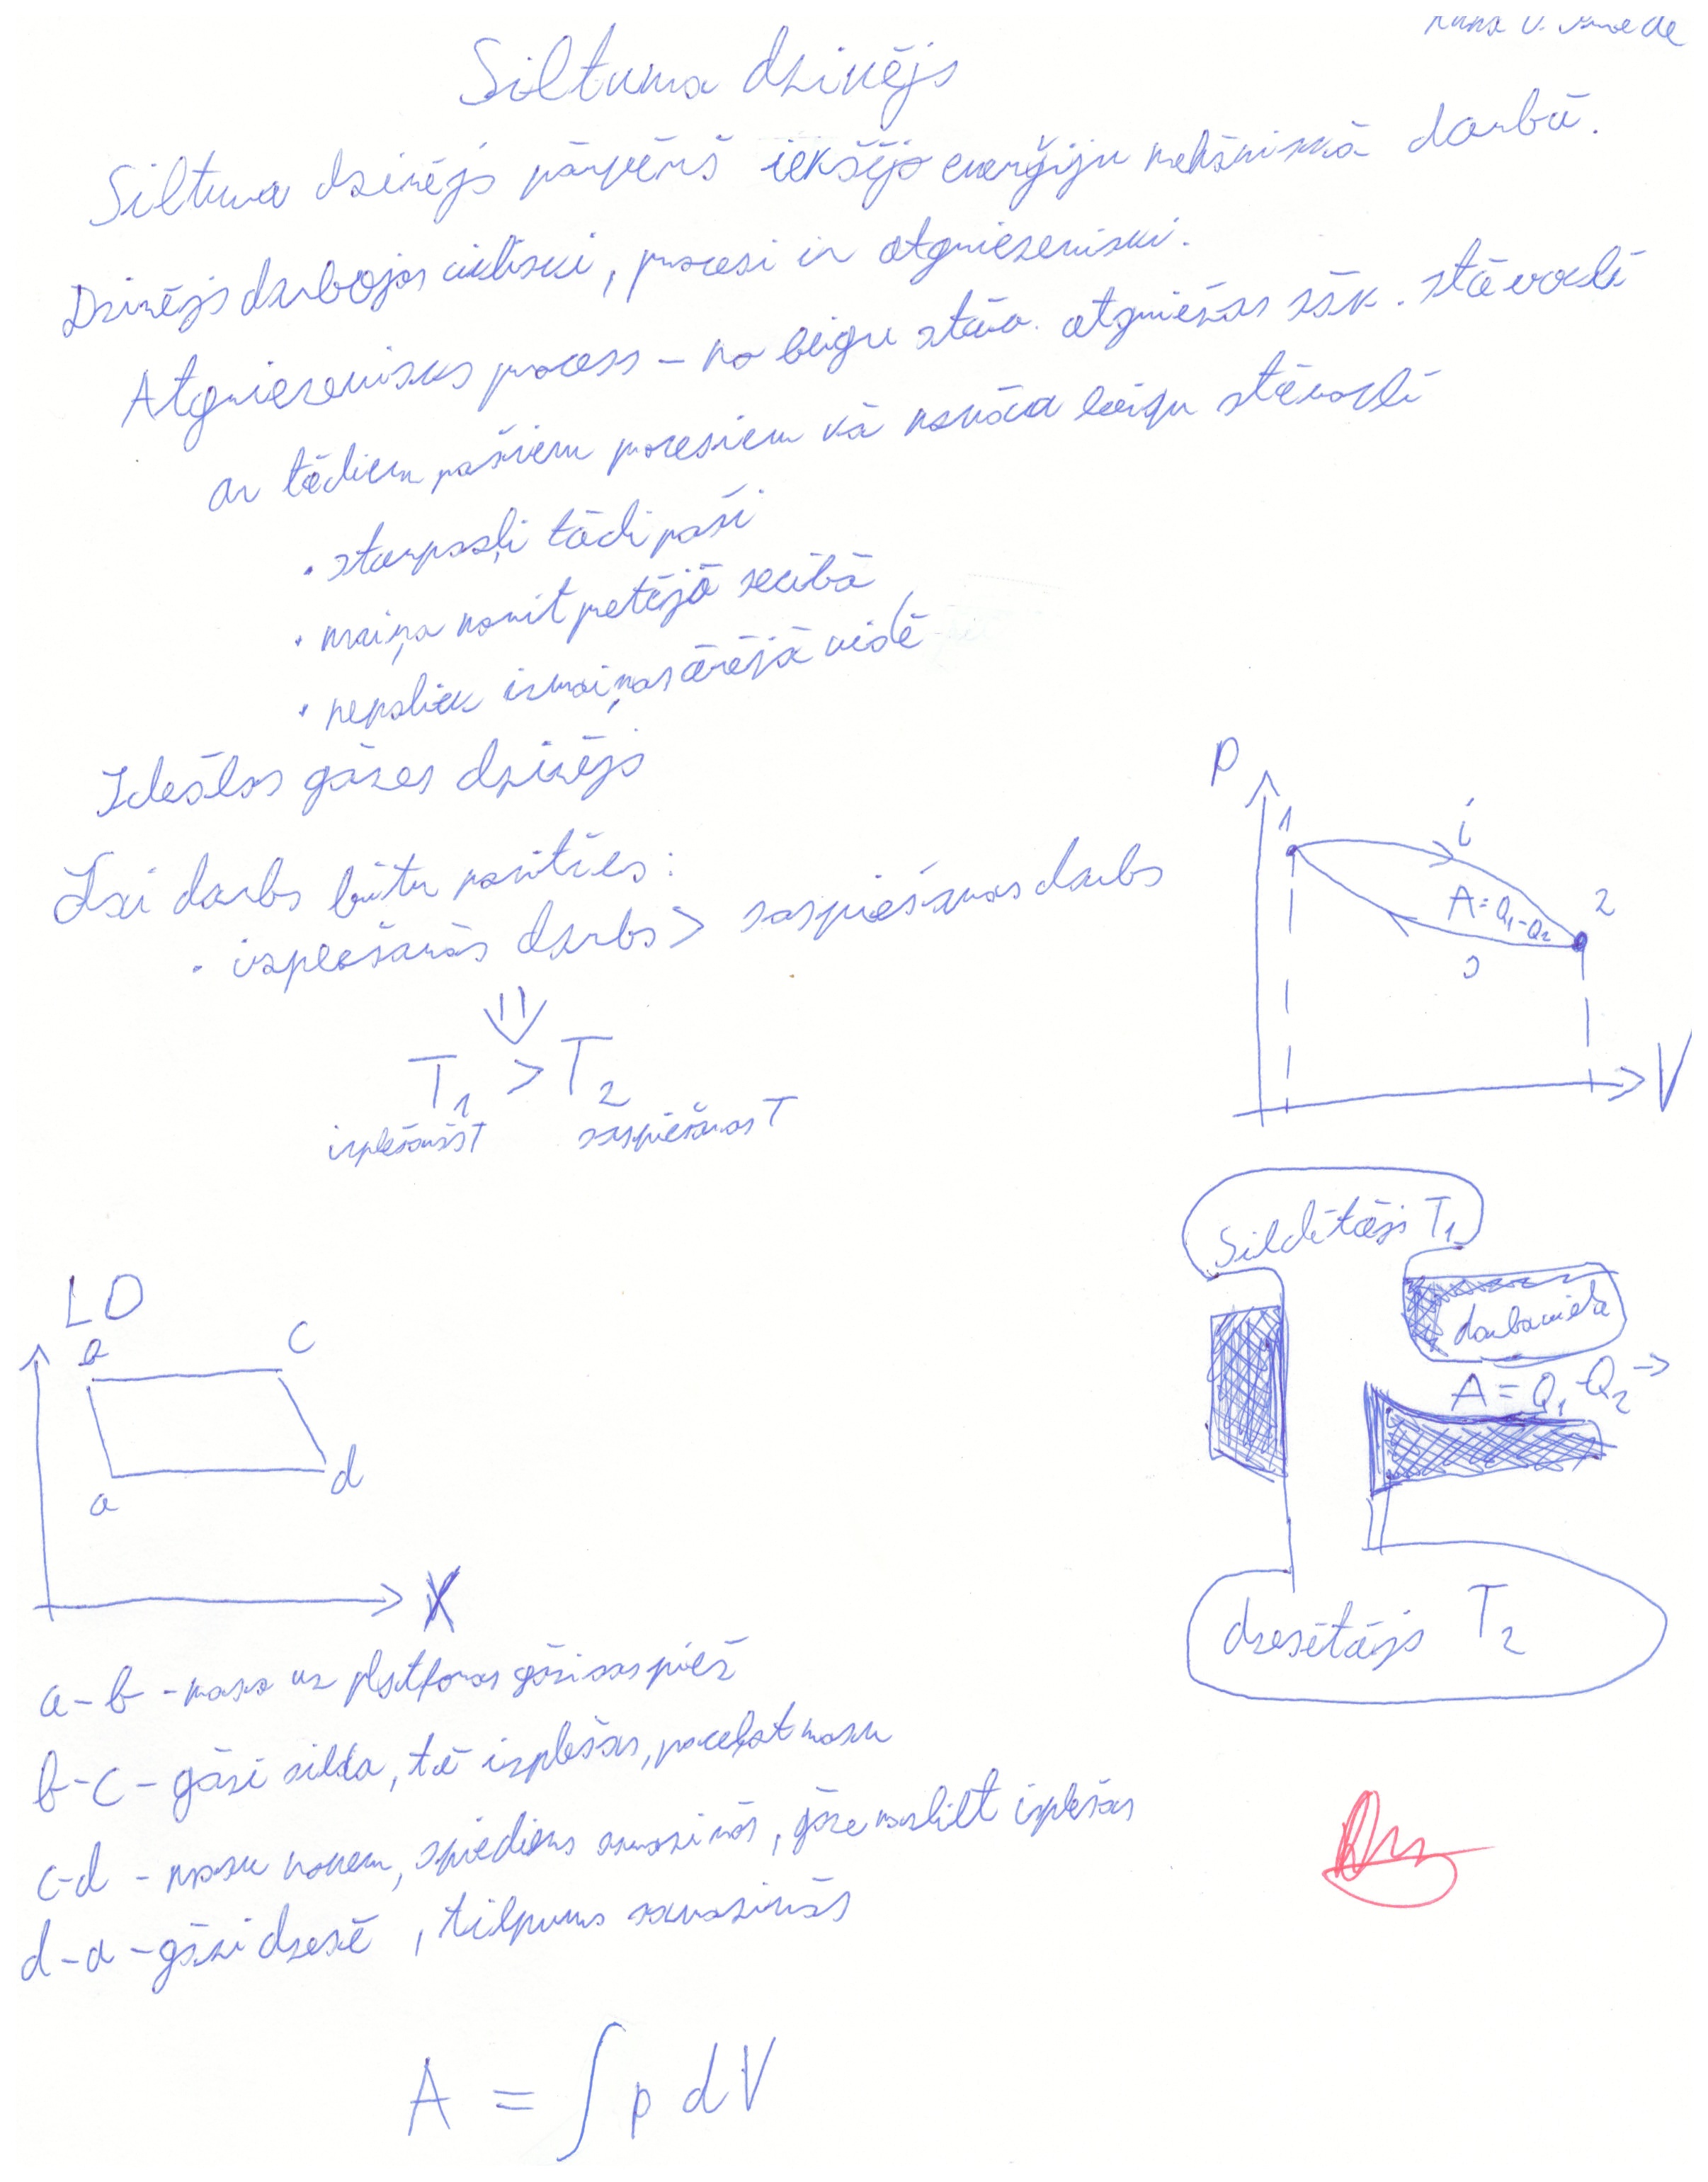 Siltuma dzinējs
Siltuma dzinējs pārvērš iekšējo enerģiju mehāniskā darbā.
Dzinējs darbojas cikliski, procesi ir atgriezeniski.
Atgriezenisks process – no beigu stāv. atgriežas sāk. stāvoklī
ar tādiem pašiem procesiem kā nonāca beigu stāvoklī
• starpposmi tādi paši
• maiņa norit pretējā secībā
• nepaliek izmaiņas ārējā vidē
Ideālas gāzes dzinējs
Lai darbs būtu pozitīvs:
• izplešanās darbs > saspiešanas darbs
⇓
T₁ > T₂
izplešanās T saspiešanas T
p
1
i
A = Q₁-Q₂
2
s
V
Sildītājs T₁
darbaviela
A = Q₁-Q₂ →
dzesētājs T₂
LD
b
c
a
d
X
a-b - masa uz platformas gāzi saspiež
b-c - gāzi silda, tā izplešas, paceļot masu
c-d - masu noņem, spiediens samazinās, gāze mazliet izplešas
d-a - gāzi dzesē, tilpums samazinās
A = ∫ p dV